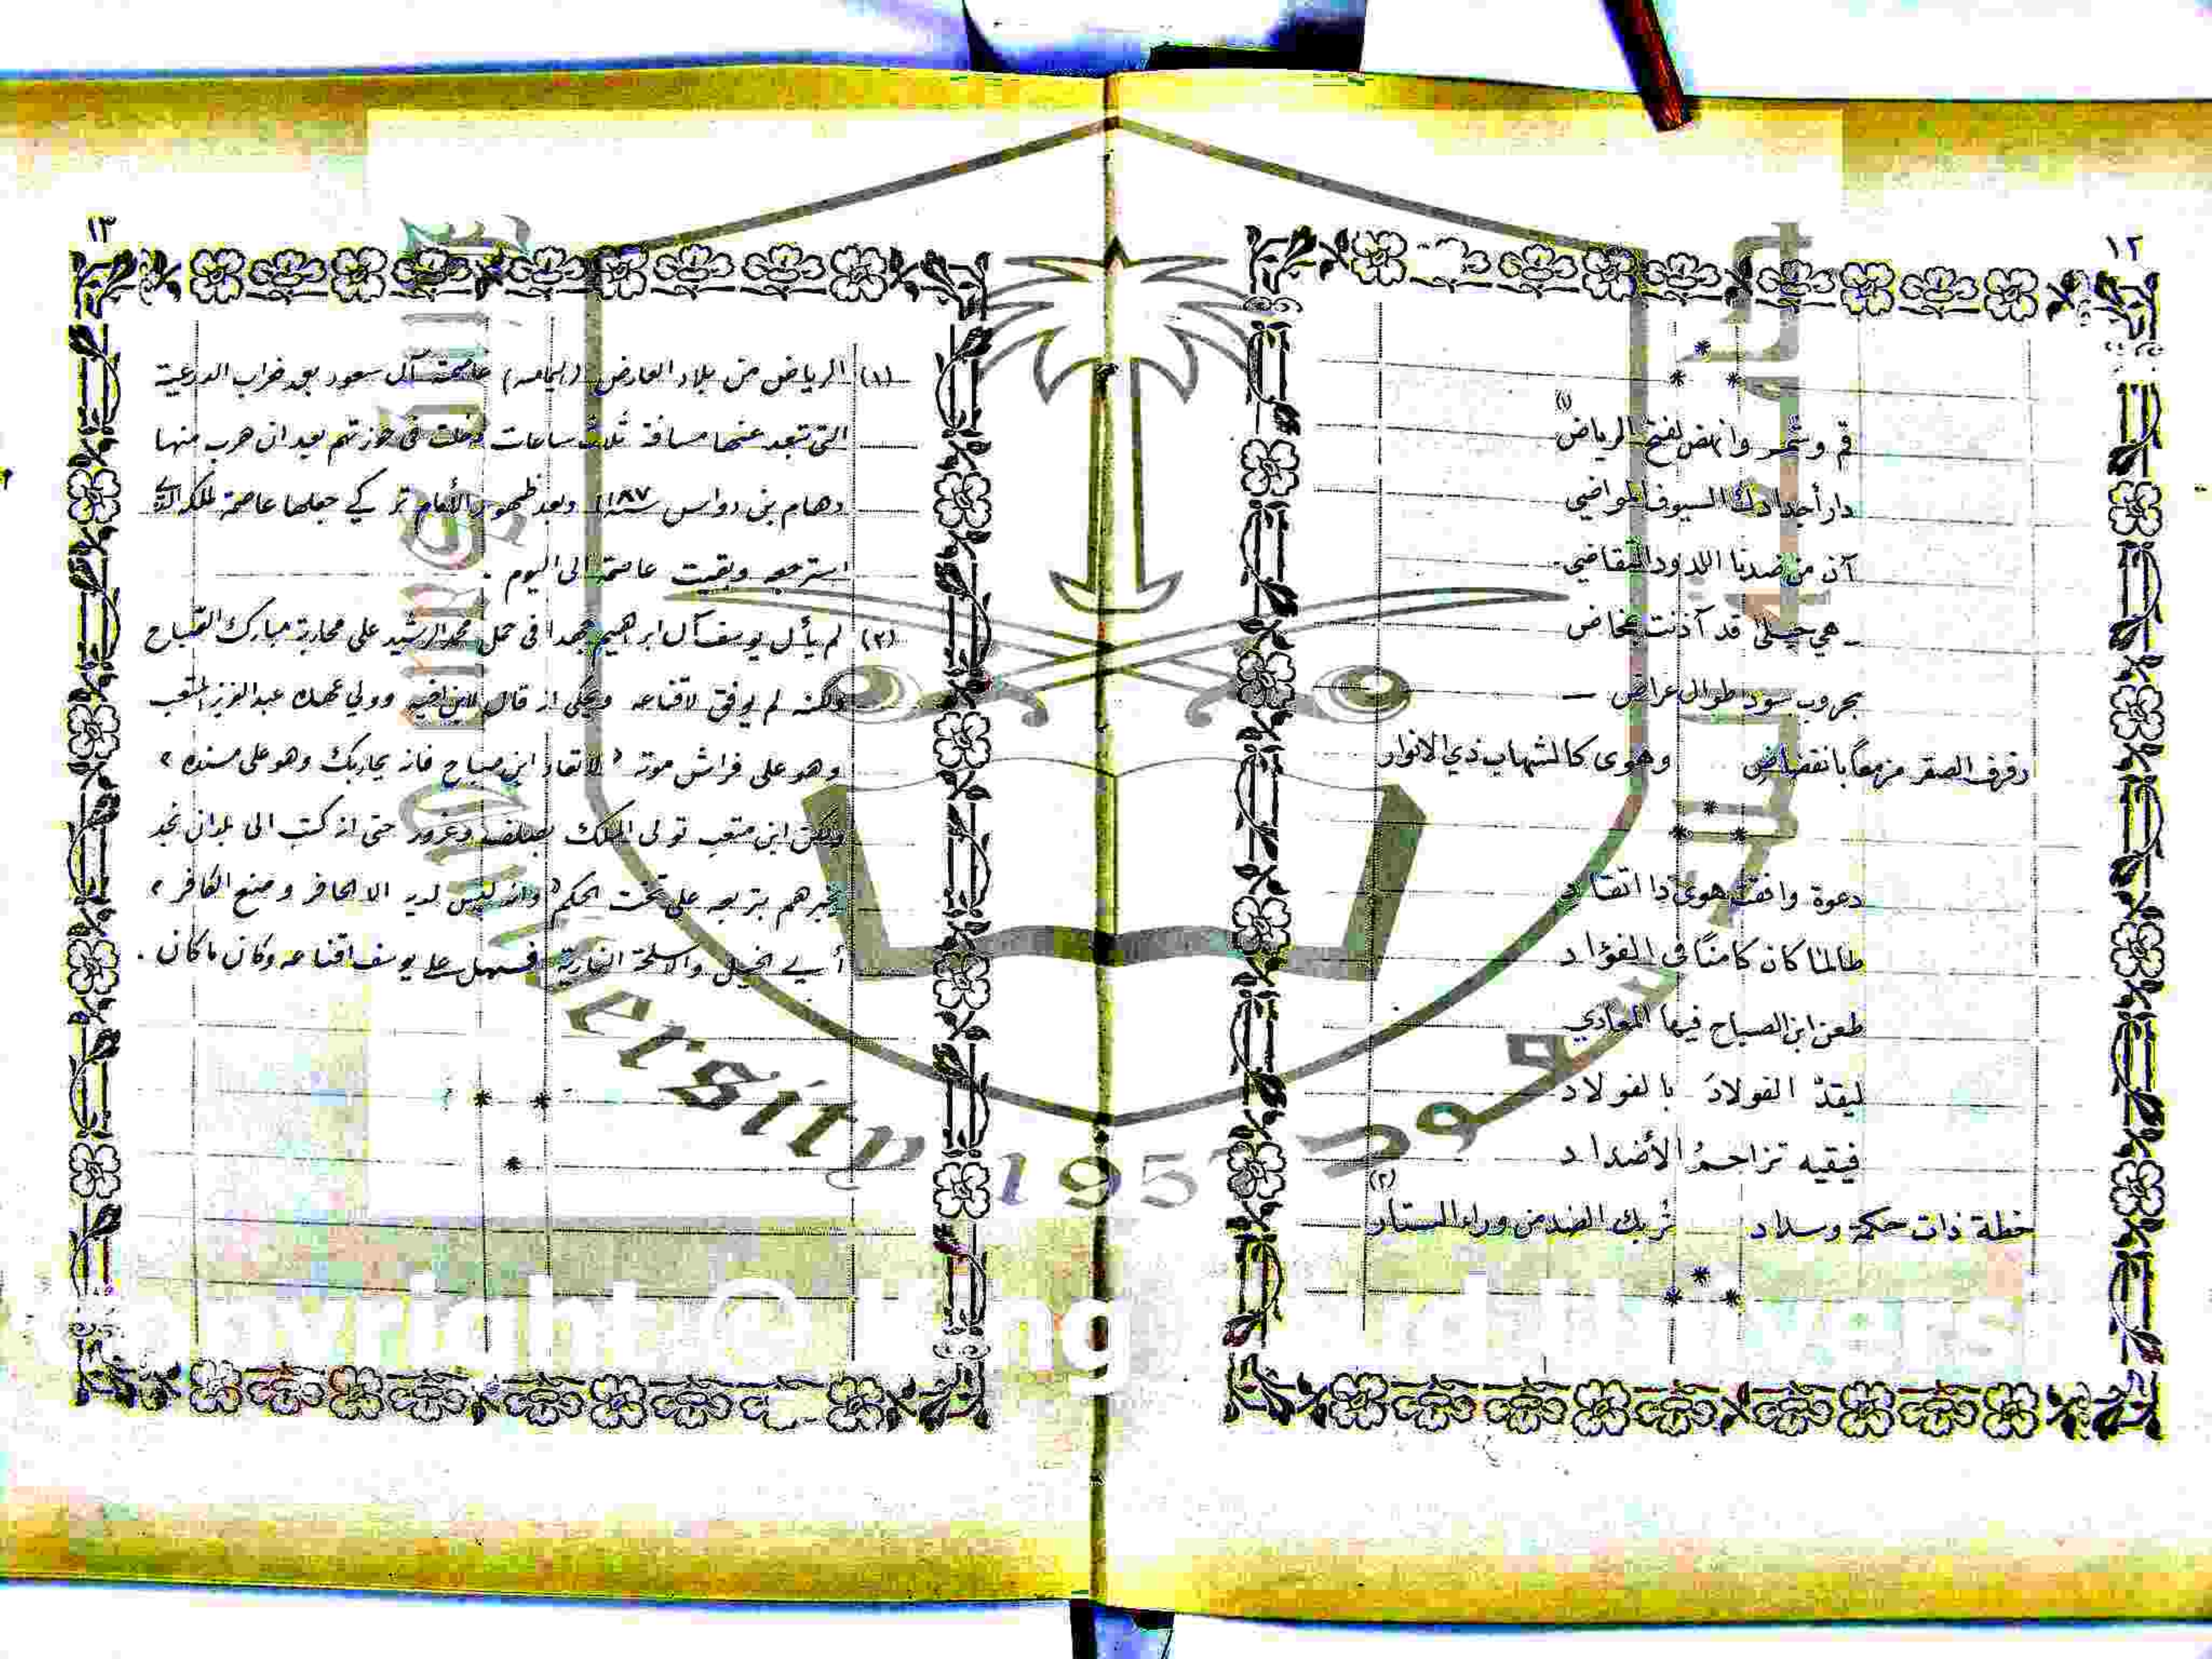 ١٢
*
* *
قم وشمر وانهض لفتح الرياض (١)
دار أجدادك السيوف المواضي
آن من ضدنا اللدود التقاضي
ـ هي حبلى قد آذنت بمخاض
بحروب سود طوال عراض ـ
رفرف الصقر مزمعاً بانقضاض وهوى كالشهاب ذي الانوار
*
* *
دعوة وافقت هوى ذا اتقاد
طالما كان كامنًا في الفؤاد
طعن ابن الصباح فيها المعادي
ليقدّ الفولادَ بالفولاد
فيقيه تزاحمُ الأضداد
خطة ذات حكمة وسداد تُربك الضد من وراء الستار (٢)
*
* *
١٣
(١) الرياض من بلاد العارض (اليمامه) عاصمة آل سعود بعد خراب الدرعية
التي تبعد عنها مسافة ثلاث ساعات دخلت في حوزتهم بعد ان هرب منها
دهام بن دواس سنة ١١٨٧ وبعد ظهور الأمام تركي جعلها عاصمة لملكه الذي
استرجعه وبقيت عاصمة الى اليوم .
(٢) لم يأل يوسف آل ابراهيم جهدا في حمل محمد الرشيد على محاربة مبارك الصباح
ولكنه لم يوفق لاقناعه ويحكى انه قال لابن اخيه وولي عهده عبد العزيز المتعب
وهو على فراش موته " لا تعاد ابن صباح فانه يحاربك وهو على مسنده "
ولكن ابن متعب تولى الملك بصلف وغرور حتى انه كتب الى بلدان نجد
يخبرهم بتربعه على تخت الحكم " وانه ليس لديه الا الحافر وصنع الكافر "
أي الخيل والاسلحة النارية فسهل على يوسف اقناعه وكان ما كان .
* *
*
King Saud University 1957
جامعة الملك سعود
Copyright © King Saud University